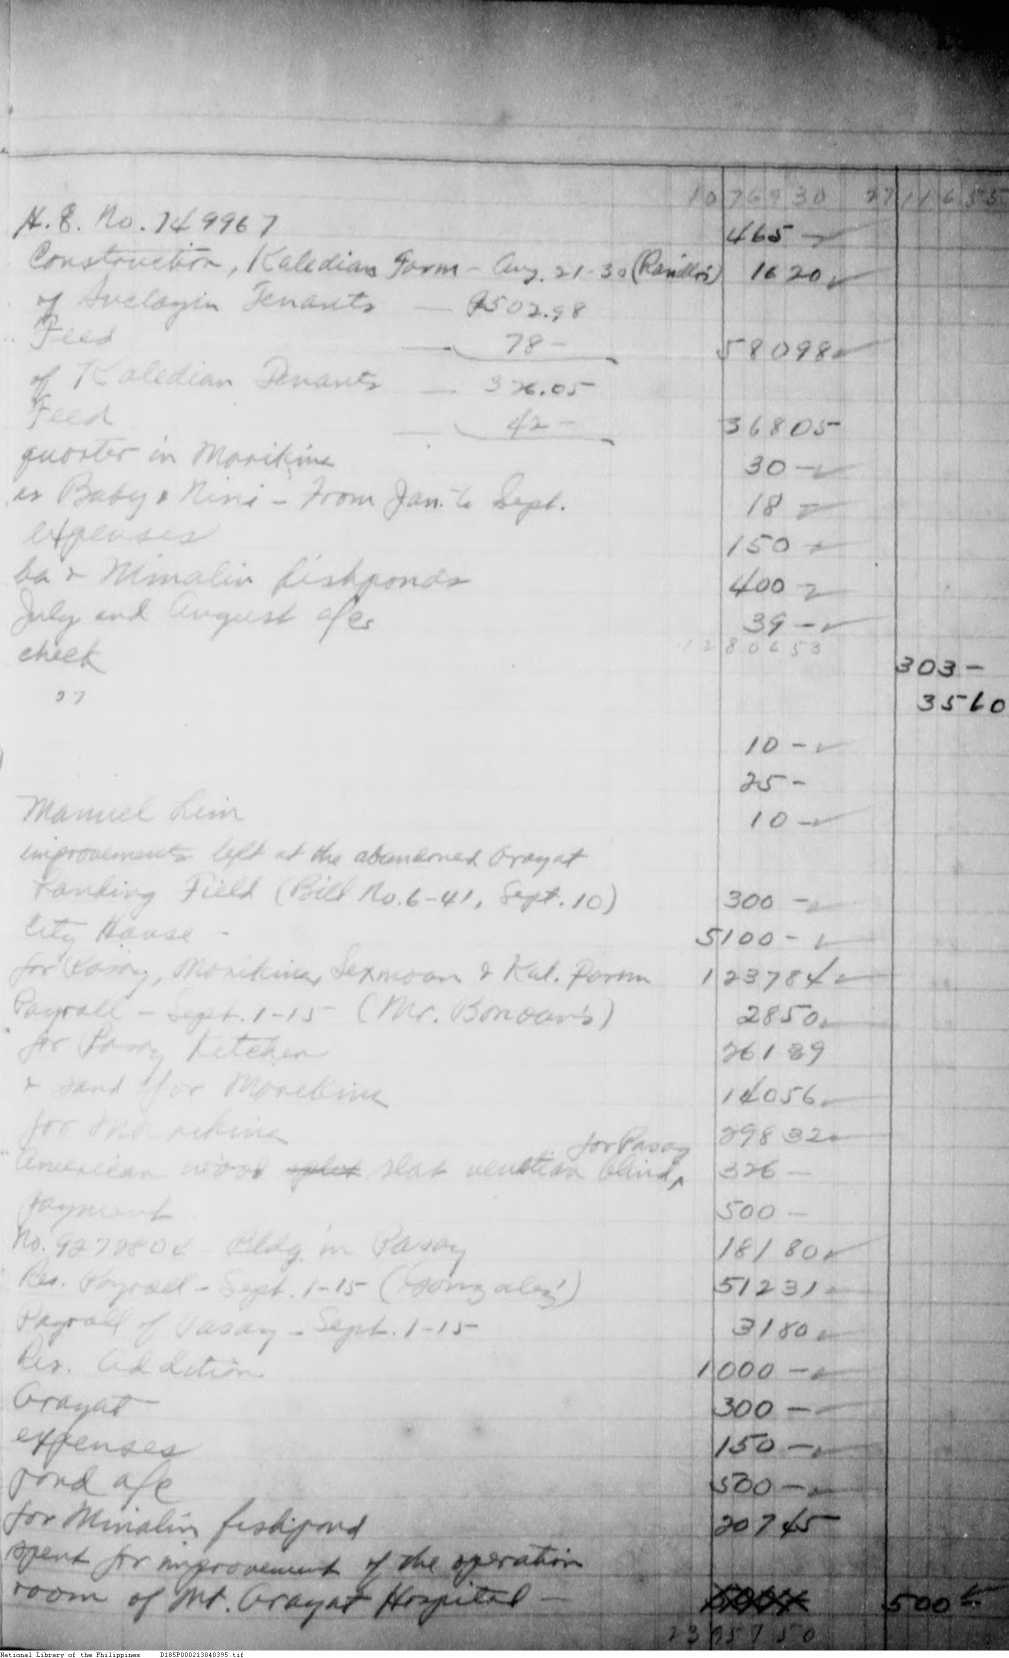 10 769 30 27 116 55
H.E. No. 749967 465 —
Construction, Kaledian Farm — Aug. 21-30 (Ramillo's) 16 20
of Suclayin Tenants — ₱502.98
Feed — 78 — 580 98
of Kaledian Tenants — 326.05
Feed — 42 — 368 05
quarter in Marikina 30 —
Baby & Nini — From Jan. to Sept. 18 —
expenses 150 —
ba & Minalin fishponds 400 —
July and August a/cs 39 —
12 806 53
check 303 —
" 35 60
10 —
25 —
Manuel Lim 10 —
improvements left at the abandoned Arayat
Landing Field (Bill No. 6-41, Sept. 10) 300 —
City House - 5100 —
for Pasay, Marikina, Sexmoan & Kal. Farm 1 237 84
Payroll — Sept. 1-15 (Mr. Bonoan's) 28 50
for Pasay Kitchen 261 89
& sand for Marikina 140 56
for Marikina 298 32
for Pasay
American wood slat venetian blind, 326 —
payment 500 —
No. 927280 Bldg. in Pasay 181 80
Res. Payroll — Sept. 1-15 (Gonzales') 512 31
Payroll of Pasay — Sept. 1-15 31 80
Res. Addition 1000 —
Arayat 300 —
expenses 150 —
pond a/c 500 —
for Minalin fishpond 207 45
spent for improvement of the operation
room of Mt. Arayat Hospital — 500 —
23 957 50
National Library of the Philippines D185P000213040395.tif